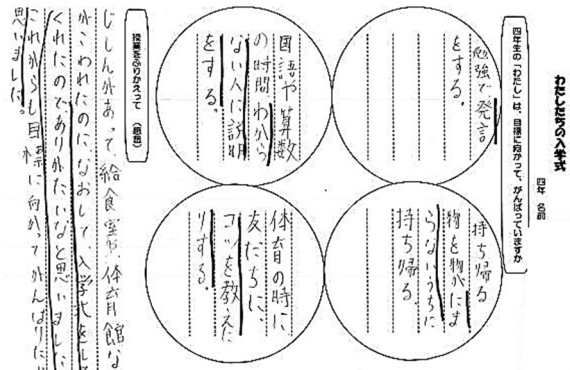 わたしたちの入学式
四年 名前
四年生の「わたし」は、目標に向かって、がんばっていますか
勉強で発言
をする。
持ち帰る
物を物がたま
らないうちに
持ち帰る。
国語や算数
の時間わから
ない人に説明
をする。
体育の時に
友だちに、
コツを教えた
りする。
授業をふりかえって（感想）
じしんがあって給食室や、体育館な
がこわれたのになおして、入学式をし
くれたのでありがたいなと思いました
これからも目標に向かってがんばりた
思いました。